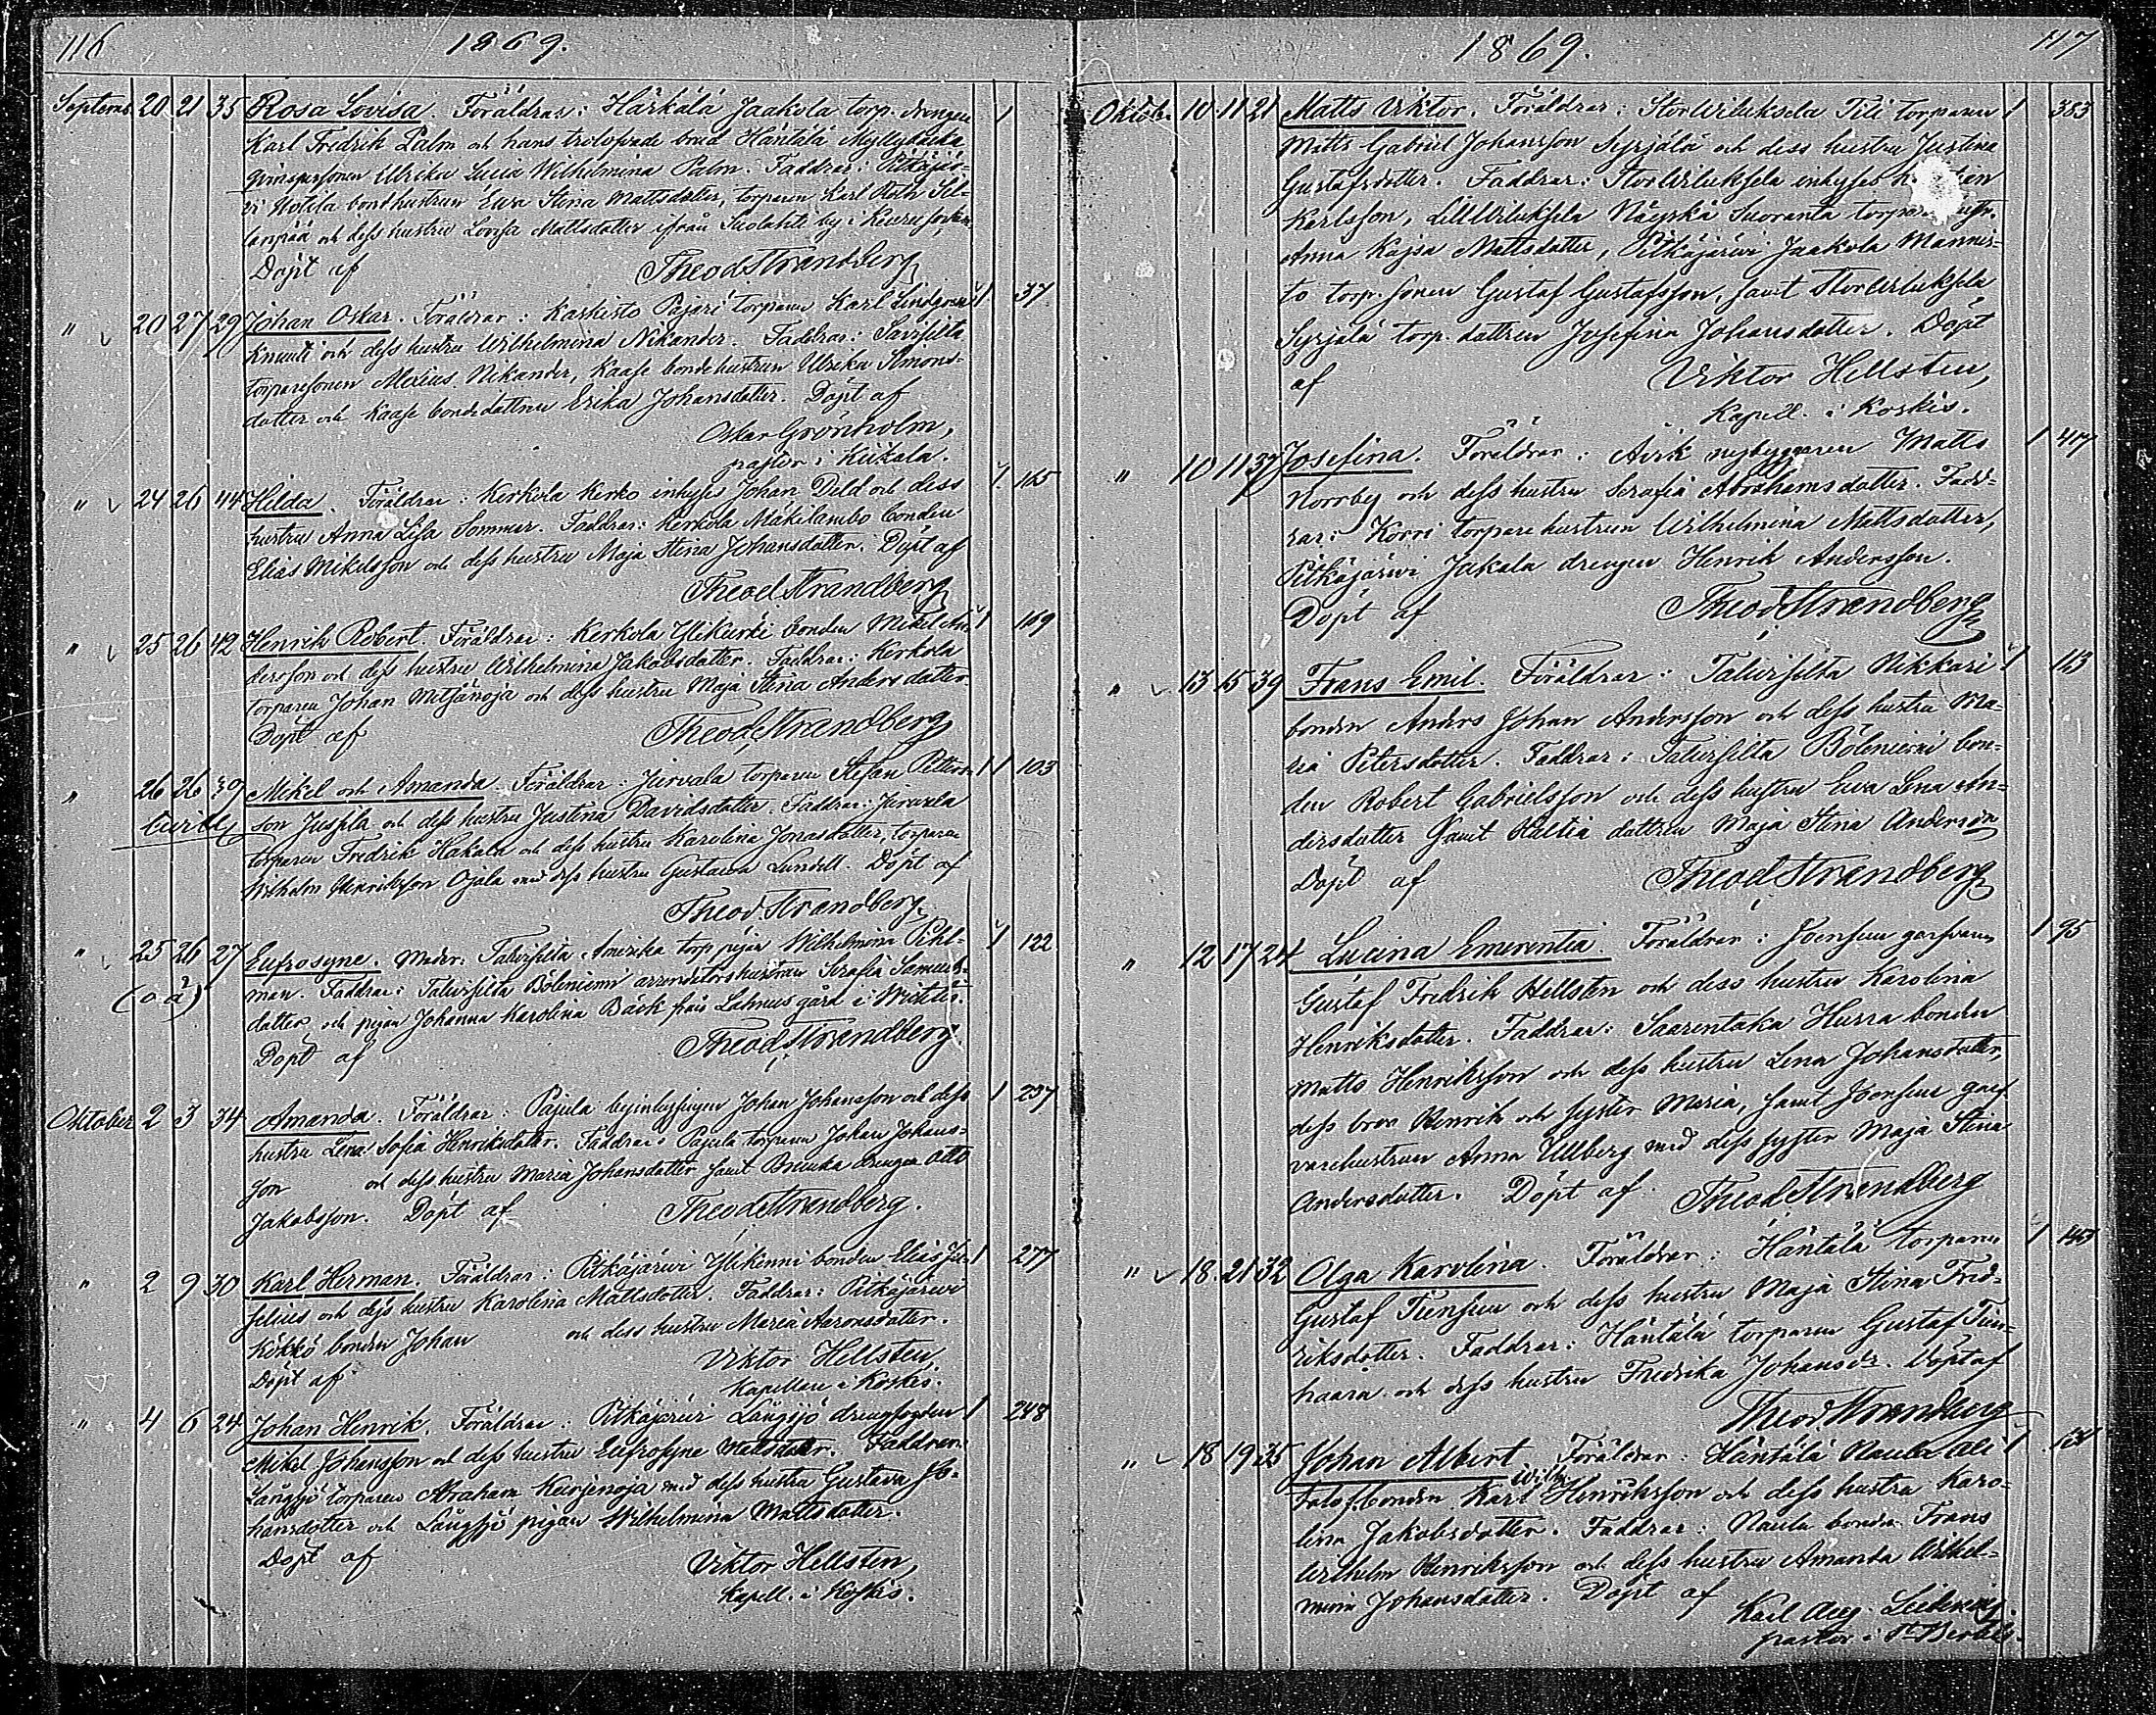 116 1869.
Septemb. 20 21 35 Rosa Lovisa. Föräldrar: Härkälä Jaakola torp. drengen 1
Karl Fredrik Palm och hans trolofvade brud Häntälä Myllynkulma
qvinspersonen Ulrika Lucia Wilhelmina Palm. Faddrar: Pitkäjär-
vi Uotila bondhustrun Ewa Stina Mattsdotter, torparen Karl
och dess hustru Lovisa Mattsdotter ifrån by i
Döpt af Theod Strandberg
" 20 27 29 Johan Oskar. Föräldrar: Kaskisto Pajari torparen Karl Lindgren 1 37
Knuuti och dess hustru Wilhelmina Nikander. Faddrar:
torparesonen Alexius Nikander, Kaase bondehustrun Ulrika Simons-
dotter och Kaase bondedottren Erika Johansdotter. Döpt af
Oskar Grönholm,
pastor i Kiikala.
" 24 26 44 Hilda. Föräldrar: Kerkola Kerko inhyses Johan Deld och dess 1 165
hustru Anna Lisa Sommar. Faddrar: Kerkola Mäkilambo bonden
Elias Mikelsson och dess hustru Maja Stina Johansdotter. Döpt af
Theod Strandberg
" 25 26 42 Henrik Robert. Föräldrar: Kerkola Ylikurki bonden Mikel An- 1 169
dersson och dess hustru Wilhelmina Jakobsdotter. Faddrar: Kerkola
torparen Johan Metsänoja och dess hustru Maja Stina Andersdotter.
Döpt af Theod Strandberg
" 26 26 39 Mikel och Amanda. Föräldrar: Jurvala torparen Stefan Petters- 1 1 103
son Jussila och dess hustru Justina Davidsdotter. Faddrar: Jurvala
torparen Fredrik Hakala och dess hustru Karolina Jonasdotter, torparen
Wilhelm Henriksson Ojala med dess hustru Gustava Lundell. Döpt af
Theod. Strandberg.
" 25 26 27 Eufrosyne. Moder: Talvisilta Amerika torp. pigan Wilhelmina Pihl- 1 122
(o ä) man. Faddrar: Talvisilta Böleniemi arrendatorshustrun Serafia Samuels-
dotter och pigan Johanna Karolina Bäck från Lahnus gård i
Döpt af Theod Strandberg.
Oktober 2 3 34 Amanda. Föräldrar: Pajula Johan Johansson och dess 1 237
hustru Lena Sofia Henriksdotter. Faddrar: Pajula torparen Johan Johans-
son och dess hustru Maria Johansdotter samt drengen
Jakobsson. Döpt af Theod Strandberg.
" 2 9 30 Karl Herman. Föräldrar: Pitkäjärvi Ylikinni bonden Elias Ju- 1 277
selius och dess hustru Karolina Mattsdotter. Faddrar: Pitkäjärvi
Kökkö bonden Johan och dess hustru Maria Aaronsdotter.
Döpt af Viktor Hellsten,
Kapellan i Koskis.
" 4 6 24 Johan Henrik. Föräldrar: Pitkäjärvi Långsjö drengfogden 1 248
Mikel Johansson och dess hustru Eufrosyne Mattsdotter. Faddrar:
Långsjö torparen Abraham Keurjenoja med dess hustru Gustava Jo-
hansdotter och Långsjö pigan Wilhelmina Mattsdotter.
Döpt af Viktor Hellsten,
Kapell. i Koskis.
1869. 117
Oktob. 10 11 21 Matts Viktor. Föräldrar: StorWiluksela Tili torparen 1 383
Matts Gabriel Johansson Syrjälä och dess hustru Justina
Gustafsdotter. Faddrar: StorWiluksela inhyses
Karlsson, LillWiluksela Näyskä Suoranta
Anna Kajsa Mattsdotter, Pitkäjärwi Jaakola Mannis-
to torp. sonen Gustaf Gustafsson, samt StorWiluksela
Syrjälä torp. dottren Josefina Johansdotter. Döpt
af Viktor Hellsten,
Kapell. i Koskis.
" 10 11 37 Josefina. Föräldrar: Avik nybyggaren Matts 1 417
Norrby och dess hustru Serafia Abrahamsdotter. Fadd-
rar: Korri torpare hustrun Wilhelmina Mattsdotter,
Pitkäjärwi Jakala drengen Henrik Andersson.
Döpt af Theod Strandberg
" 13 15 39 Frans Emil. Föräldrar: Talvisilta Nikkari 1 113
bonden Anders Johan Andersson och dess hustru Ma-
ria Petersdotter. Faddrar: Talvisilta Böleniemi bon-
den Robert Gabrielsson och dess hustru Ewa Lena An-
dersdotter samt Haltia dottren Maja Stina Anderson
Döpt af Theod Strandberg
" 12 17 24 Lucina Emerentia. Föräldrar: Joensuu garfvaren 1 95
Gustaf Fredrik Hellsten och dess hustru Karolina
Henriksdotter. Faddrar: Saarentaka Hurra bonden
Matts Henriksson och dess hustru Lena Johansdotter,
dess bror Henrik och syster Maria, samt Joensuu garf-
varehustrun Anna Ullberg med dess syster Maja Stina
Andersdotter. Döpt af Theod Strandberg
" 18 21 32 Olga Karolina. Föräldrar: Häntälä torparen 1
Gustaf Tiensuu och dess hustru Maja Stina Fred-
riksdotter. Faddrar: Häntälä torparen Gustaf Tien-
haara och dess hustru Fredrika Johansdr. Döpt af
Theod Strandberg
" 18 19 35 Johan Albert. Föräldrar: Häntälä Naula Ali 1
Wilh.
bonden Karl Henriksson och dess hustru Karo-
lina Jakobsdotter. Faddrar: Naula bonden Frans
Wilhelm Henriksson och dess hustru Amanda Wilhel-
mina Johansdotter. Döpt af Karl Aug.
pastor i